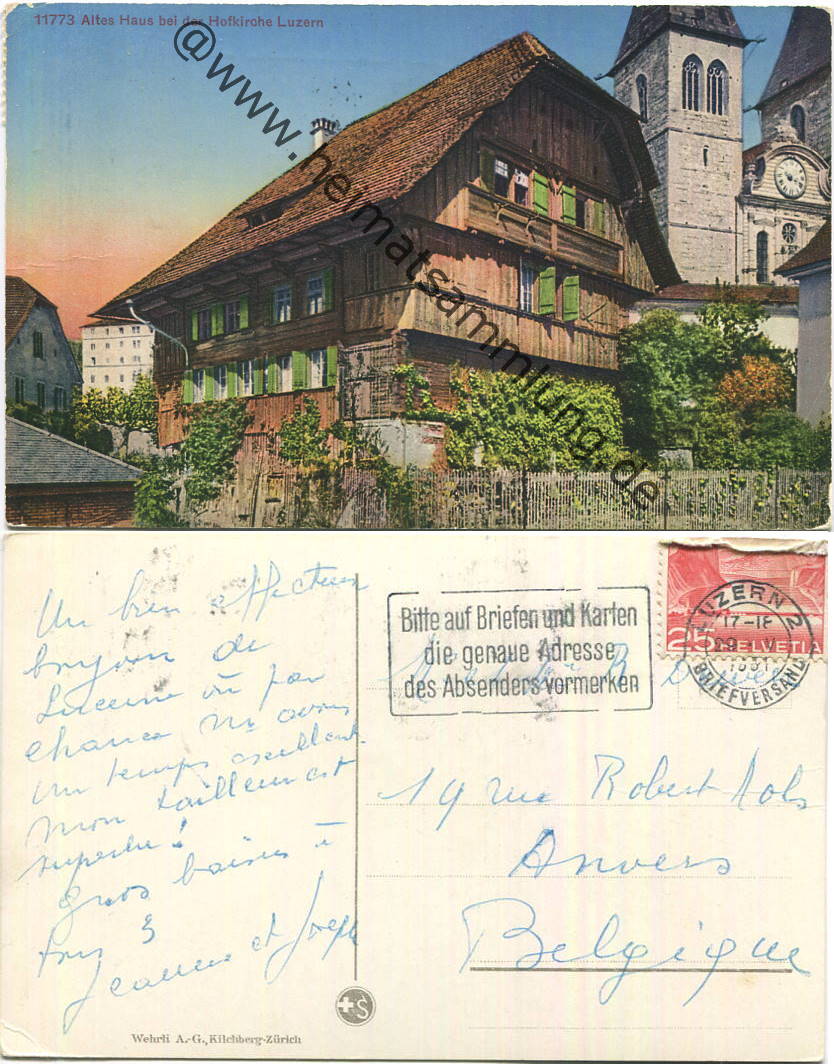 11773 Altes Haus bei der Hofkirche Luzern
@www.heimatsammlung.de
Un bien affectueux
de
Lucerne où par
chance ns avons
un temps excellent.
Mon tailleur est
superbe!
Gros baisers à
tous 3
Jeanne et Joseph
Wehrli A.-G., Kilchberg-Zürich
Bitte auf Briefen und Karten
die genaue Adresse
des Absenders vormerken
LUZERN 2
17-18
BRIEFVERSAND
25 HELVETIA
19 rue Robert Mols
Anvers
Belgique
S